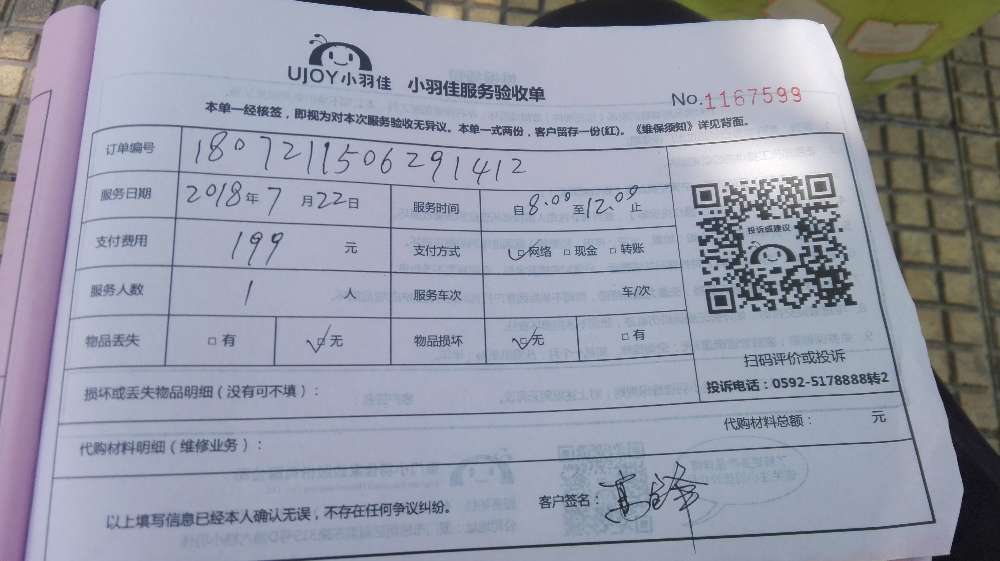 UJOY小羽佳 小羽佳服务验收单
No.1167599
本单一经核签，即视为对本次服务验收无异议。本单一式两份，客户留存一份(红)。《维保须知》详见背面。
订单编号 1807211506291412
服务日期 2018年7月22日 服务时间 自8.00至12.00止
支付费用 199元 支付方式 ☑网络 □现金 □转账
服务人数 1人 服务车次 车/次
物品丢失 □有 ☑无 物品损坏 ☑无 □有
投诉或建议
扫码评价或投诉
投诉电话：0592-5178888转2
损坏或丢失物品明细（没有可不填）：
代购材料明细（维修业务）： 代购材料总额： 元
以上填写信息已经本人确认无误，不存在任何争议纠纷。 客户签名：